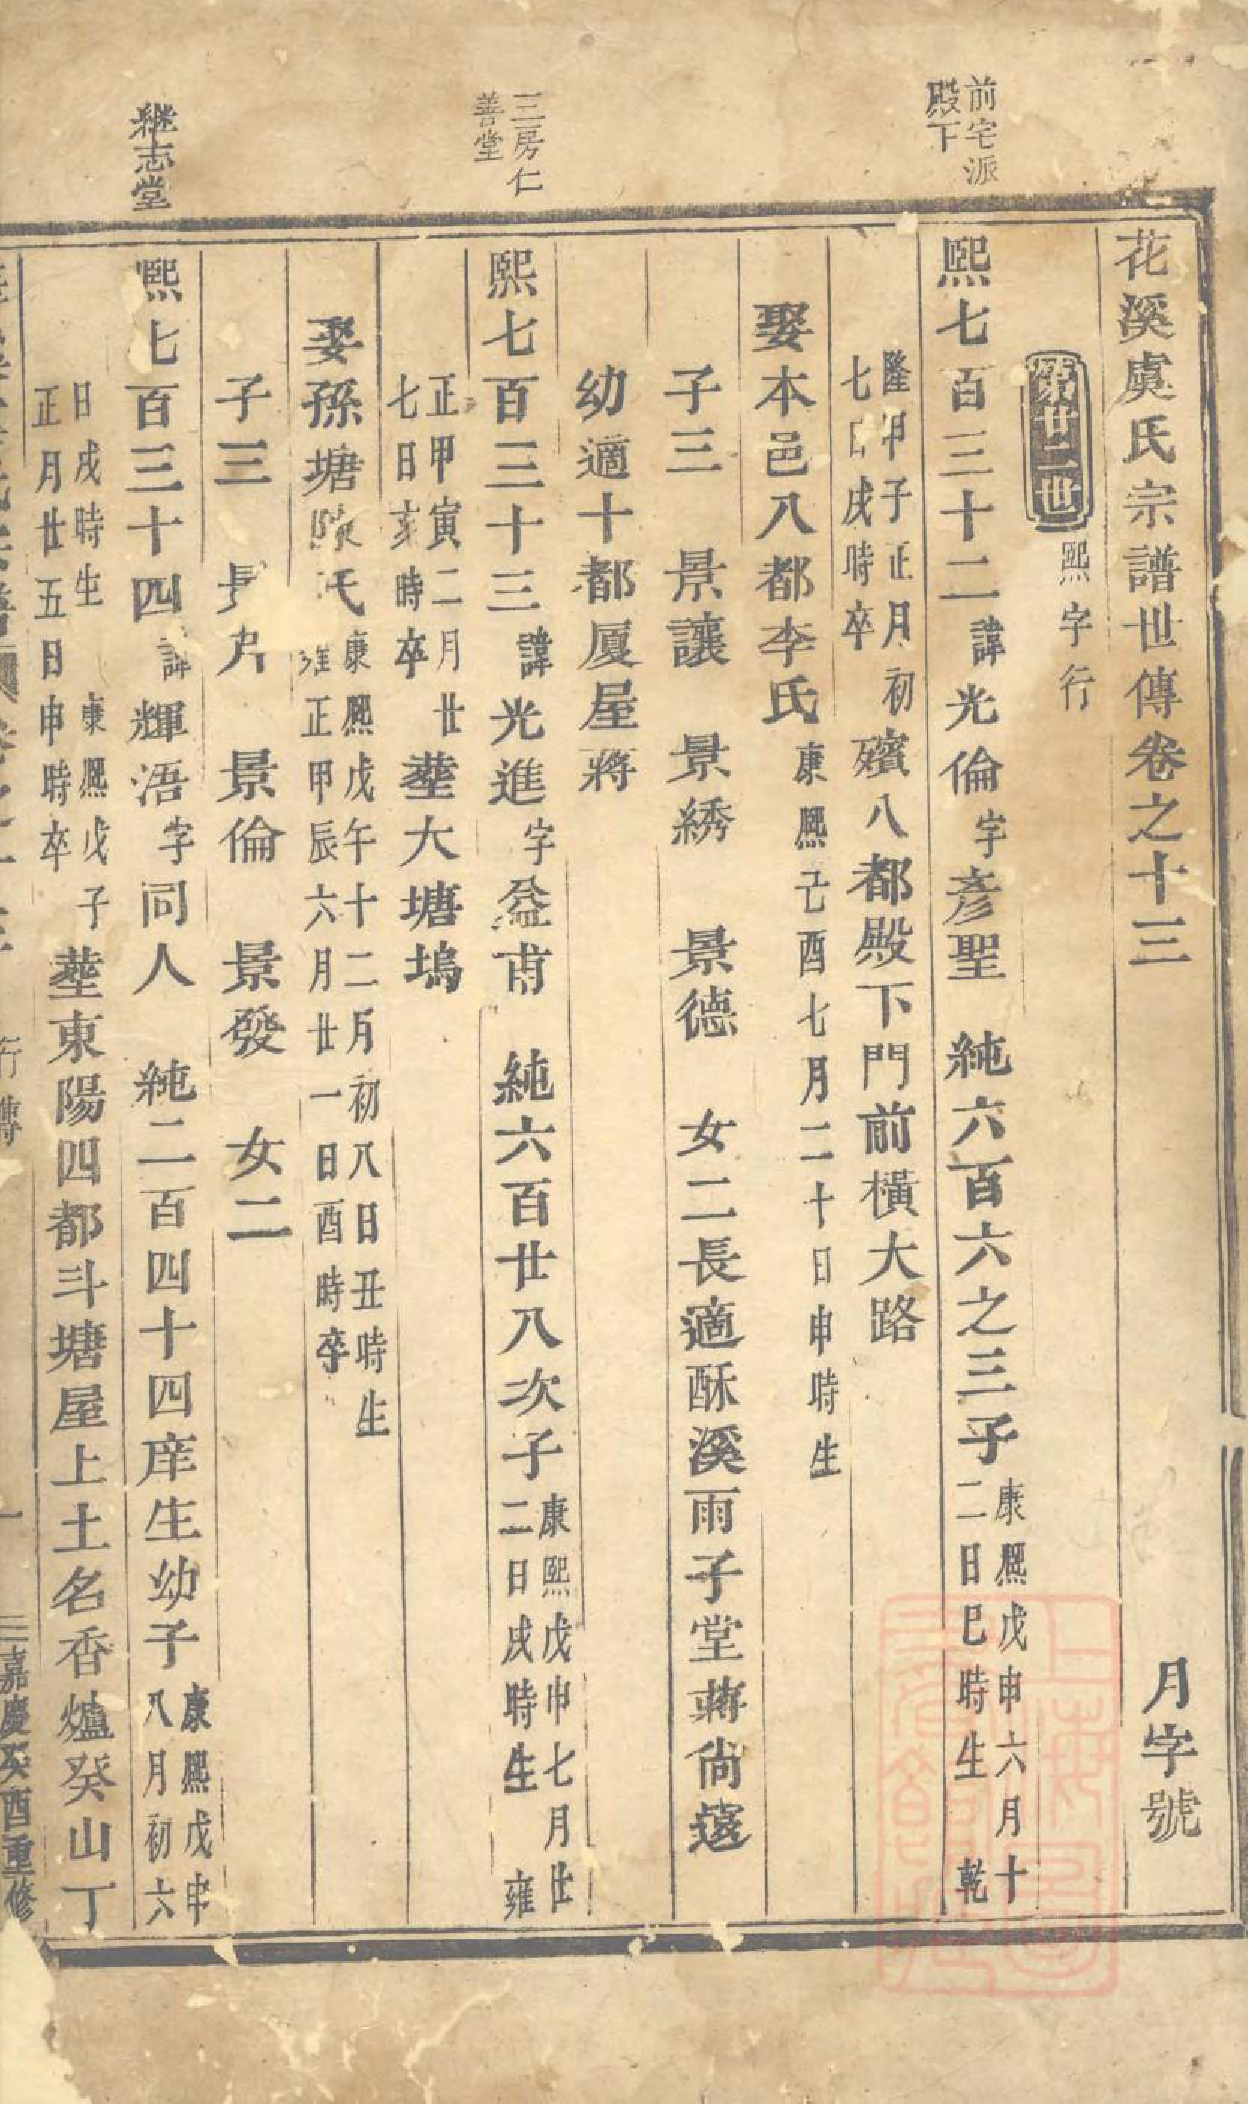 花溪虞氏宗譜世傳卷之十三 月字號
第廿二世 熙字行
前宅派
殿下
熙七百三十二 諱光倫 字彥聖 純六百六之三子 康熙戊申六月十
二日巳時生 乾
隆甲子正月初
七日戌時卒 殯八都殿下門前橫大路
娶本邑八都李氏 康熙己酉七月二十日申時生
子三 景讓 景綉 景德 女二長適酥溪雨子堂蔣尚蓫
幼適十都厦屋蔣
三房仁
善堂
熙七百三十三 諱光進 字益甫 純六百廿八次子 康熙戊申七月廿
二日戌時生 雍
正甲寅二月廿
七日亥時卒 塟大塘塢
娶孫塘陳氏 康熙戊午十二月初八日丑時生
雍正甲辰六月廿一日酉時卒
子三 景倫 景發 女二
継志堂
熙七百三十四 諱輝浯 字同人 純二百四十四庠生幼子 康熙戊申
八月初六
日戌時生 康熙戊子
正月廿五日申時卒 塟東陽四都斗塘屋上土名香爐癸山丁
行傳 一 三 嘉慶癸酉重修